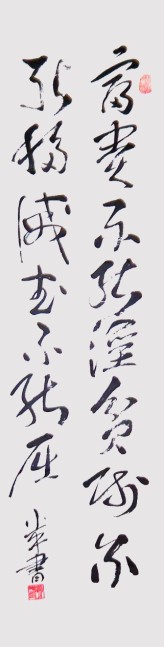 富贵不能淫贫贱不
能移威武不能屈
書